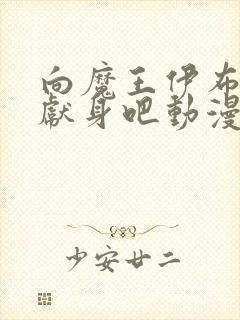 向魔王伊布
獻身吧動漫
少安廿二